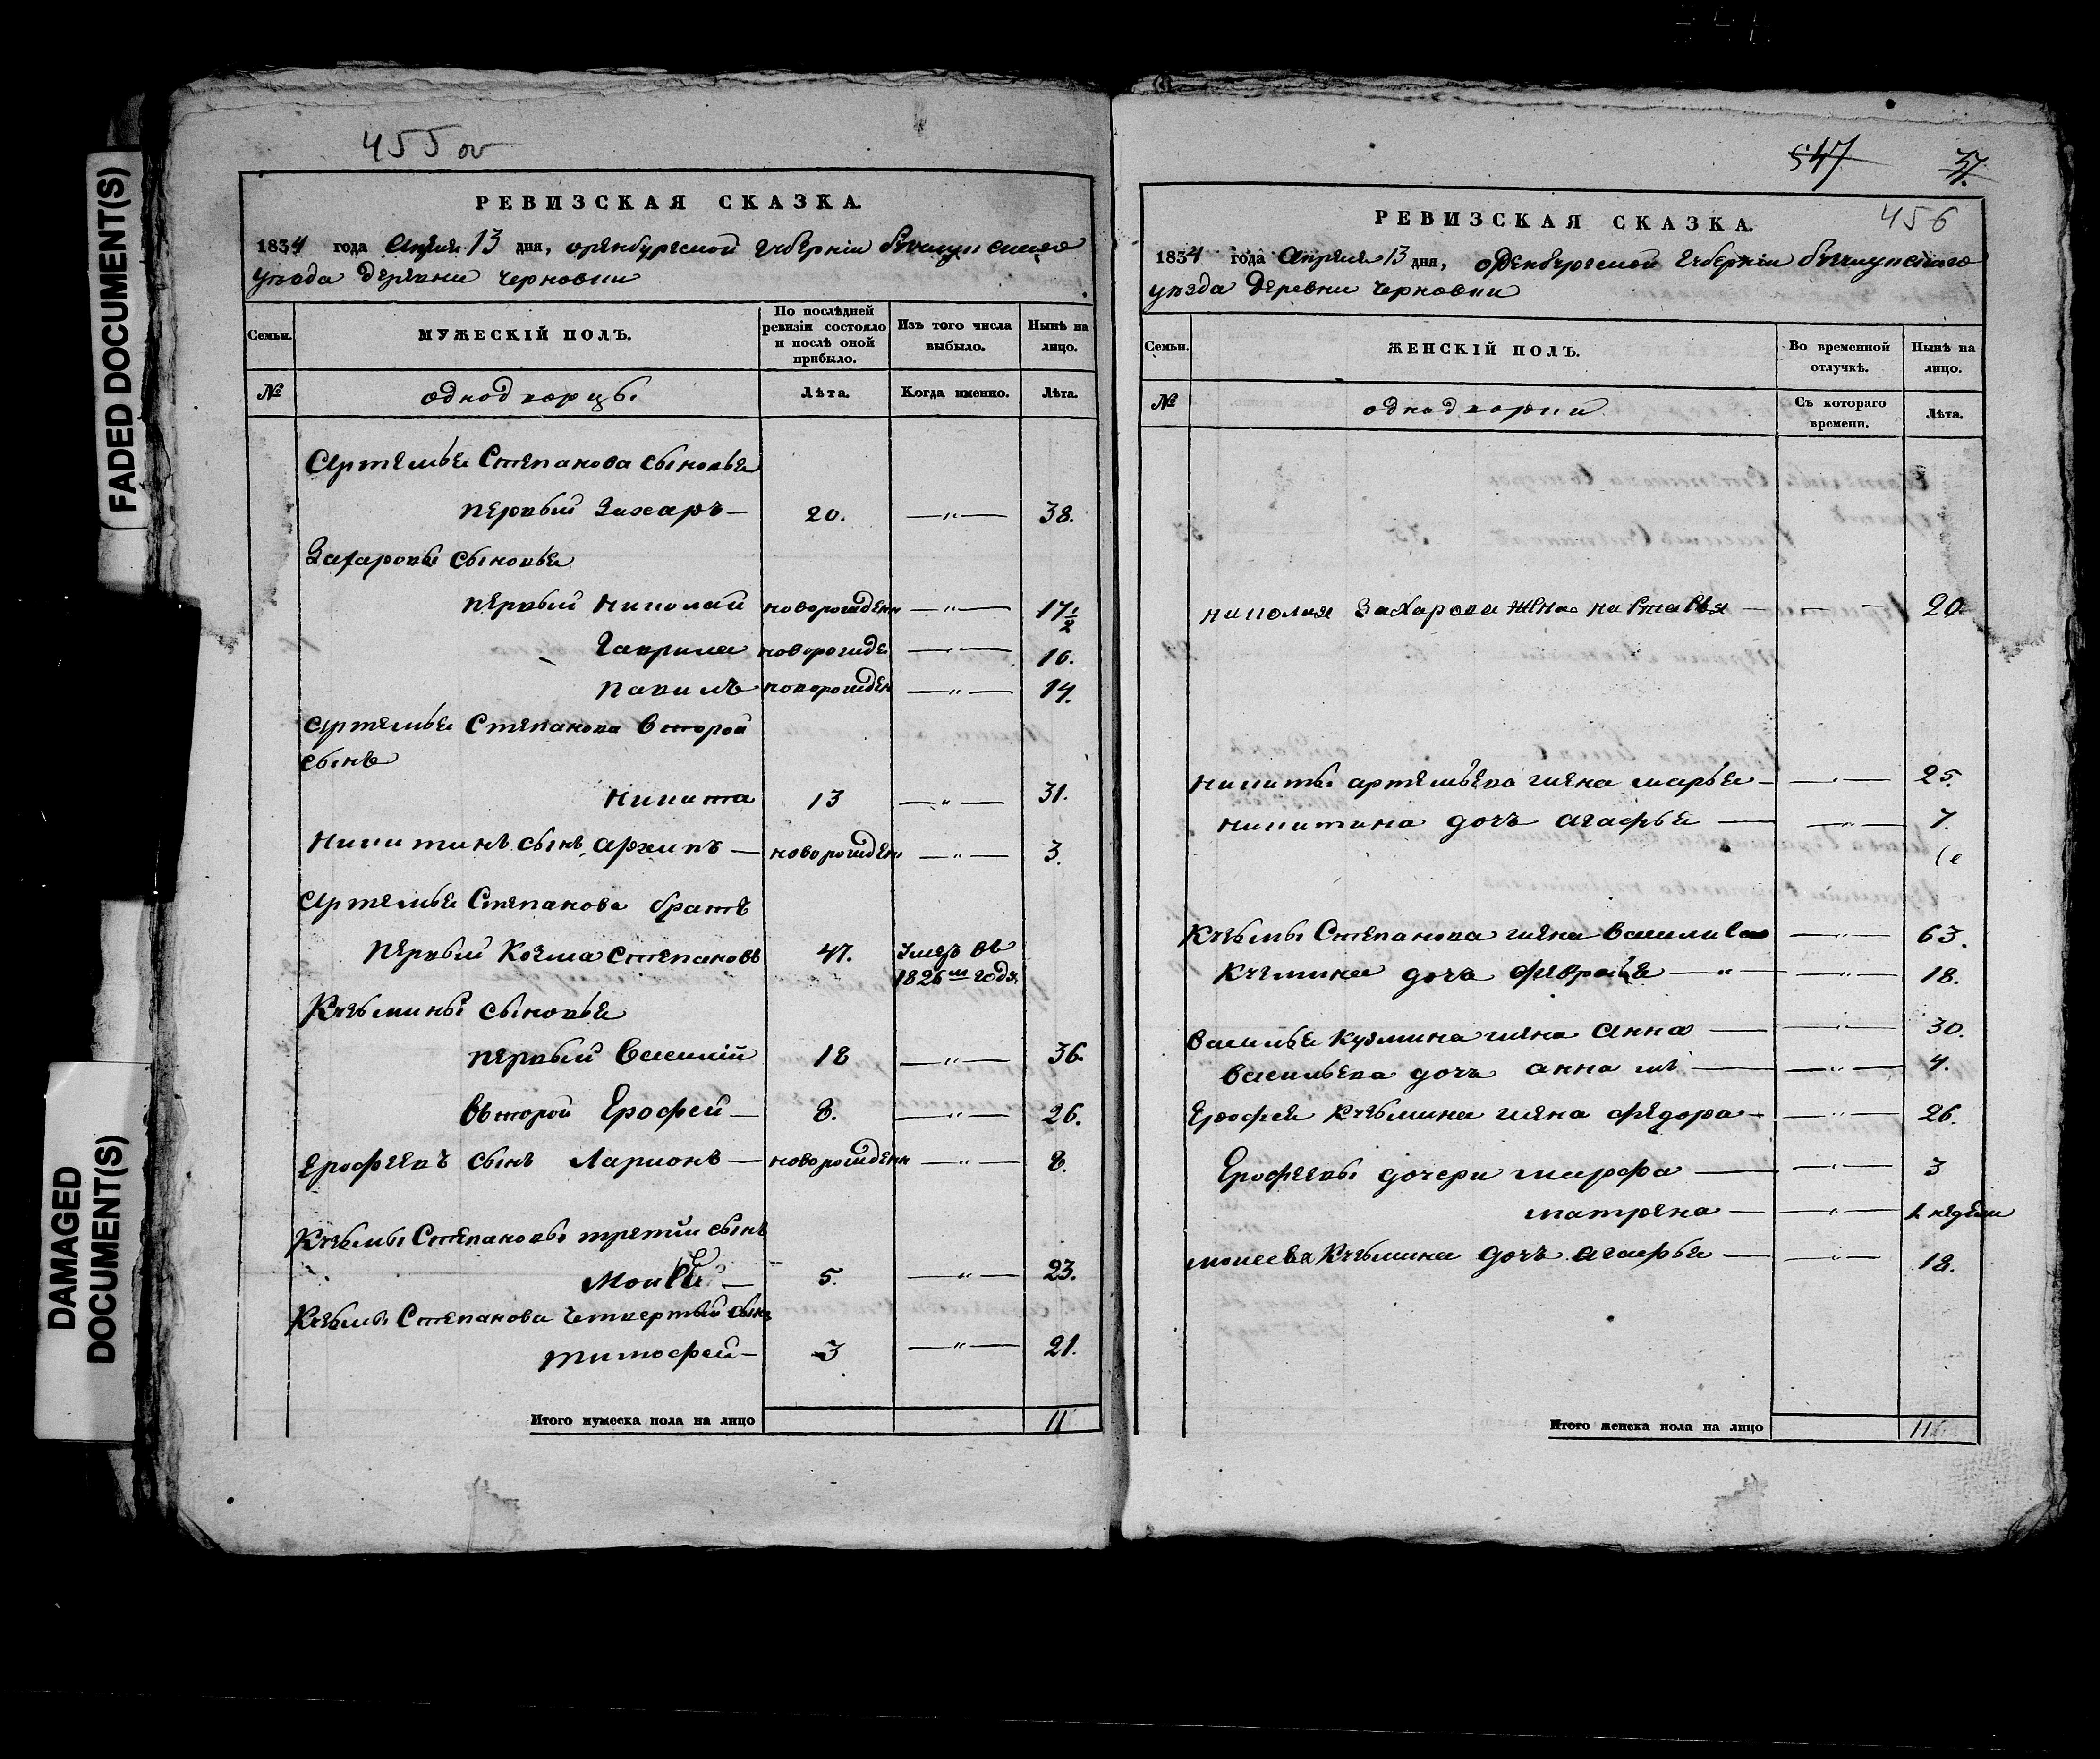 FADED DOCUMENT(S)
DAMAGED
DOCUMENT(S)
455 об
РЕВИЗСКАЯ СКАЗКА.
1834 года Апреля 13 дня, оренбургской губернии бузулукскаго
уезда деревни Черновки
Семьи.
МУЖЕСКІЙ ПОЛЪ.
По послѣдней
ревизіи состояло
и послѣ оной
прибыло.
Изъ того числа
выбыло.
Нынѣ на
лицо.
№
однодворцы.
Лѣта.
Когда именно.
Лѣта.
Артемья Степанова сыновья
первый Захаръ — 20. — " — 38.
Захаровы сыновья
первый Николай новорожден — " — 17 1/2
Гаврила новорожде — " — 16.
Павилъ новорожден — " — 14.
Артемья Степанова второй
сынъ
Никита 13 — " — 31.
Никитинъ сынъ архипъ — новорожден — " — 3.
Артемья Степанова братъ
первый Козма Степановъ 47. Умеръ въ
1826 м годѣ
Кузьмины сыновья
первый Василій 18 — " — 36.
Второй Ерофей — 8. — " — 26.
Ерофеевъ сынъ Ларионъ — новорожденн — " — 8.
Кузьмы Степановы третій сынъ
Моисей — 5. — " — 23.
Кузьмы Степанова Четвертый сынъ
Тимофей — 3 — " — 21.
Итого мужеска пола на лицо 11
547 37.
456
РЕВИЗСКАЯ СКАЗКА.
1834 года Апреля 13 дня, оренбургской губерніи бузулукскаго
уезда деревни Черновки
Семьи.
ЖЕНСКІЙ ПОЛЪ.
Во временной
отлучкѣ.
Нынѣ на
лицо.
№
однодворки
Съ котораго
времени.
Лѣта.
николая Захарова жена настасья — 20
никиты артемьева жена марья — " — 25.
никитина дочь агафья — " — 7.
Кузьмы Степанова жена Василиса — " — 63.
Кузмина дочь — " — 18.
Василья Кузмина жена Анна — " — 30.
Васильева дочь анна — " — 4.
Ерофея Кузьмина жена федора — " — 26.
Ерофеевы дочери марфа — " — 3
матрена — " — недели
моисея Кузьмина дочь агафья — " — 18.
Итого женска пола на лицо 11